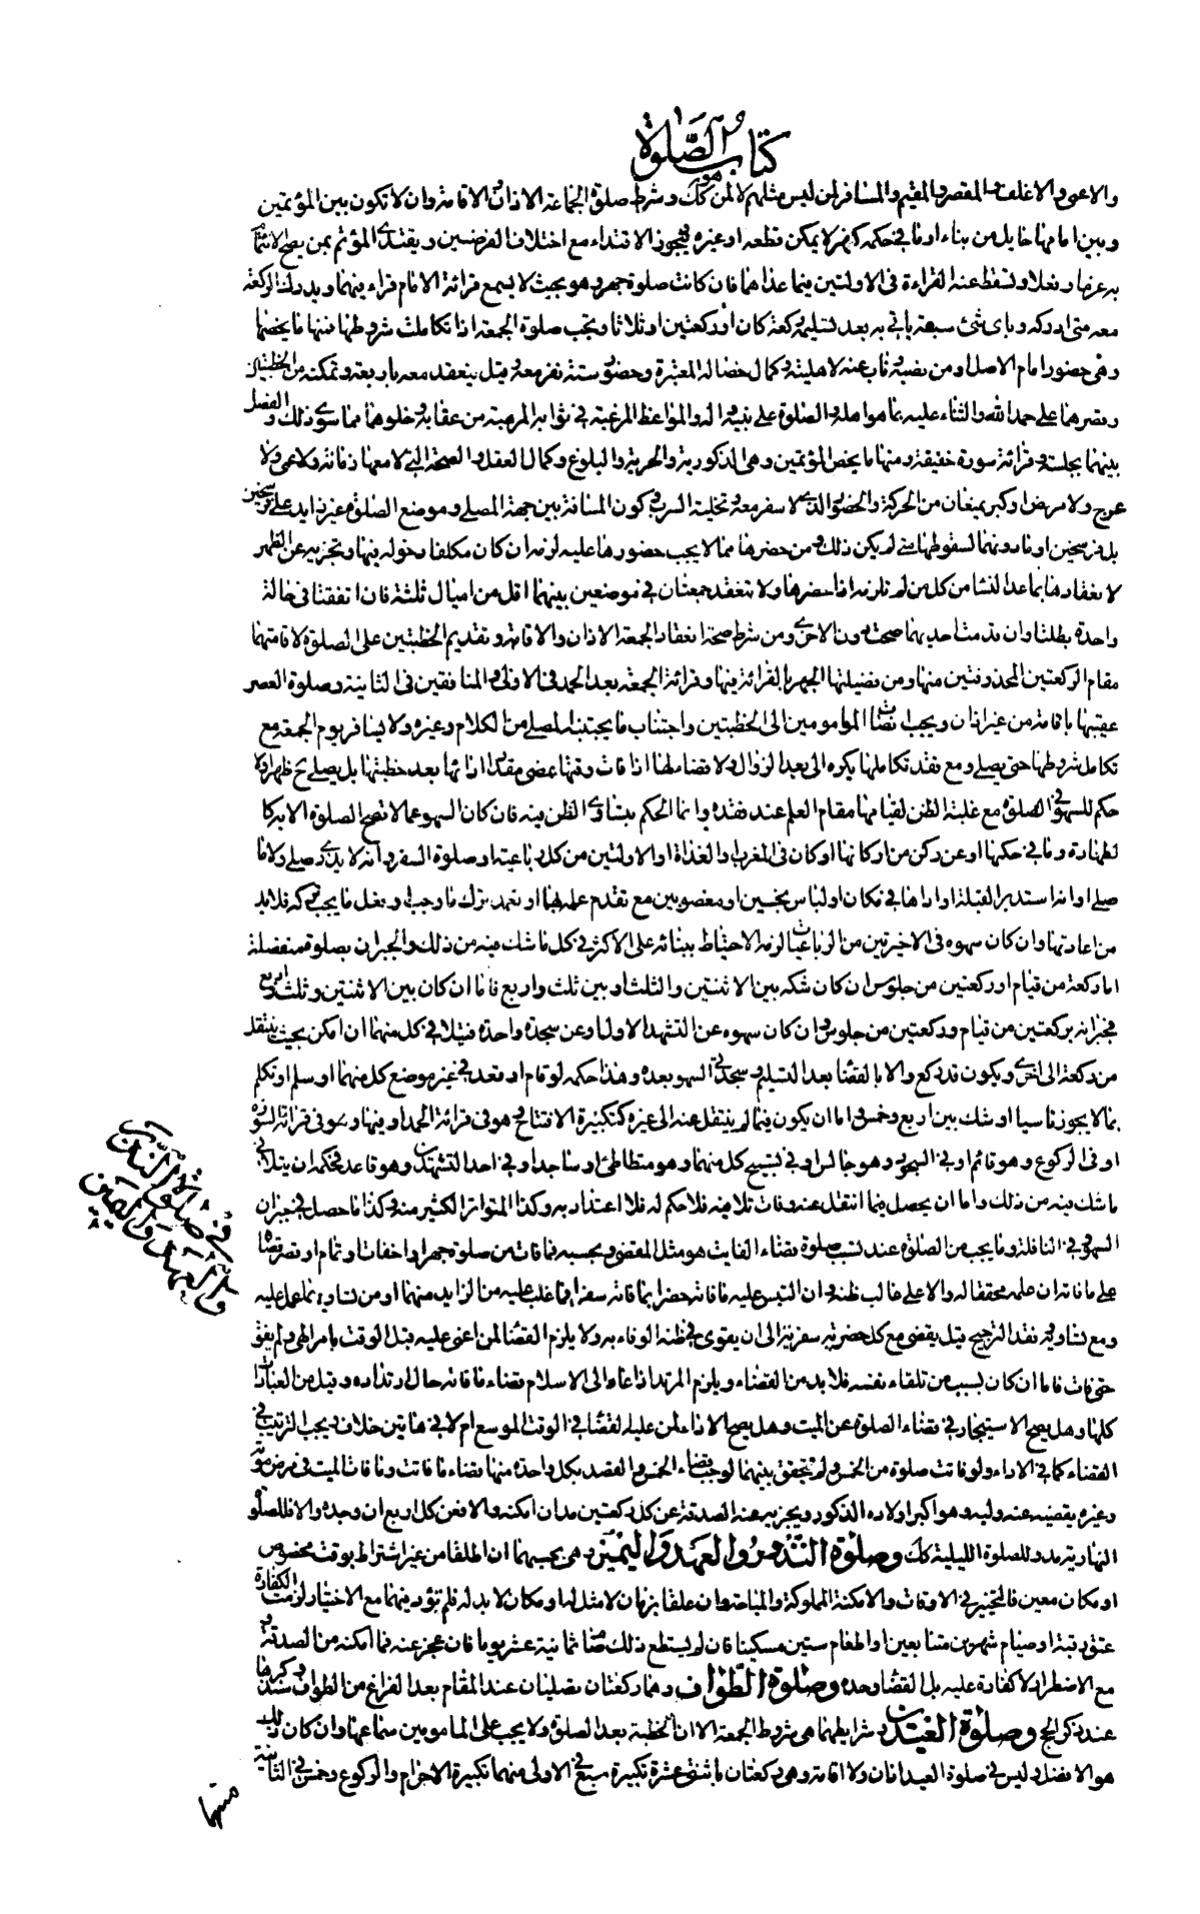 كتاب الصلوة
والاعمى والاغلف والمقصر والمقيم والمسافر لمن ليس مثلهم لا لمن هو كك وشرط صلوة الجماعة الاذان والاقامة وان لا تكون بين المؤتمين
وبين امامها حايل من بناء او ما في حكمه كنهر لا يمكن قطعه او غيره فيجوز الاقتداء مع اختلاف الفرضين ويقتدى المؤتم بمن يصح الايتمام
به عزما وفعلا وتسقط عنه القراءة في الاولتين فيما عداهما فان كانت صلوة جهر وهو بحيث لا يسمع قرائة الامام قراء فيهما ويدرك الركعة
معه متى ادركه وباى شئ سبقه ياتي به بعد تسليمه ركعة كان او ركعتين او ثلاثا وتجب صلوة الجمعة اذا تكاملت شروطها فمنها ما يخصها
وهى حضور امام الاصل او من نصبه وناب عنه لاهليته وكمال خصاله المعتبرة وحضور ستة نفر معه وقيل ينعقد معه باربعة وتمكنه من الخطبتين
وقصرهما على حمد الله والثناء عليه بما هو اهله والصلوة على نبيه واله والمواعظ المرغبة في ثوابه المرهبة من عقابه وخلوهما مما سوى ذلك والفصل
بينهما بجلسة وقرائة سورة خفيفة ومنها ما يخص المؤتمين وهى الذكورية والحرية والبلوغ وكمال العقل والصحة التي لا معها زمانة ولا عمى ولا
عرج ولا مرض او كبر يمنعان من الحركة والحضر الذى لا سفر معه وتخلية السرب وكون المسافة بين جهة المصلي وموضع الصلوة غير زايد على فرسخين
بل فرسخين او ما دونهما لسقوطها متى لم يكن ذلك ومن حضرها مما لا يجب حضورها عليه لزمه ان كان مكلفا دخوله فيها وتجزيه عن الظهر
لانعقادها بما عدا النساء من كل من لم تلزمه اذا حضرها ولا تنعقد جمعتان في موضعين بينهما اقل من اميال ثلثة فان اتفقتا في حالة
واحدة بطلتا وان قدمت احديهما صحت دون الاخرى ومن شرط صحة انعقاد الجمعة الاذان والاقامة وتقديم الخطبتين على الصلوة لاقامتهما
مقام الركعتين المحذوفتين منها ومن فضيلتها الجهر بالقرائة فيها وقرائة الجمعة بعد الحمد في الاولى والمنافقين في الثانية وصلوة العصر
عقيبها باقامة من غير اذان ويجب انصات المامومين الى الخطبتين واجتناب ما يجتنبه المصلي من الكلام وغيره ولا يسافر يوم الجمعة مع
تكامل شروطها حتى يصلي ومع فقد تكاملها يكره الى بعد الزوال ولا قضاء لها اذا فات وقتها بمضي مقدار ادائها بعد خطبتها بل يصلي ح ظهرا ولا
حكم للسهو في الصلوة مع غلبة الظن لقيامها مقام العلم عند فقده وانما الحكم بتساوى الظن فيه فان كان السهو عما لا تصح الصلوة الا به كا
لطهارة وما في حكمها او عن ركن من اركانها او كان في المغرب او الغداة او الاولتين من كل رباعية او صلوة السفر او انه لا يدرى صلى ولا ما
صلى او انه استدبر القبلة او اداها في مكان او لباس نجسين او مغصوبين مع تقدم علمه بهما او تعمد ترك ما وجب او بفعل ما يجب تركه فلا بد
من اعادتها وان كان سهوه في الاخيرتين من الرباعيات لزمه الاحتياط ببنائه على الاكثر في كل ما شك فيه من ذلك والجبران بصلوة منفصلة
اما ركعة من قيام او ركعتين من جلوس ان كان شكه بين الاثنتين والثلث او بين ثلث واربع فاما ان كان بين الاثنتين وثلث واربع
فجبرانه بركعتين من قيام وركعتين من جلوس وان كان سهوه عن التشهد الاول او عن سجدة واحدة فيتلافى كل منهما ان امكن بحيث ينتقل
من ركعة الى اخرى ويكون قد ركع والا بالقضاء بعد التسليم وسجدتي السهو بعده وهذا حكمه لو قام او قعد في غير موضع كل منهما او سلم او تكلم
بما لا يجوز ناسيا او شك بين اربع وخمس واما ان يكون فيما لم ينتقل عنه الى غيره كتكبيرة الافتتاح وهو في قرائة الحمد او فيها وهو في قرائة السورة
او في الركوع وهو قائم او في السجود وهو جالس او في تسبيح كل منهما وهو متطاطئ او ساجد او في احد التشهدين وهو قاعد فحكمه ان يتلافى
ما شك فيه من ذلك واما ان يحصل فيما انتقل عنه وفات تلافيه فلا حكم له فلا اعتداد به وكذا المتواتر الكثير منه وكذا ما حصل في جبران
السهو وفي النافلة وما يجب من الصلوة عند تسبب صلوة قضاء الفايت هو مثل المقضي وبحسبه فما فات من صلوة جهر او اخفات او تمام او قصر قضاه
على ما فاته ان علمه محققا له والا على غالب ظنه وان التبس عليه ما فاته حضرا بما فاته سفرا فما غلب عليه من الزايد منهما او من تساويه فالعمل عليه
ومع تساويه وفقد الترجيح قيل يقضى مع كل حضرية سفرية الى ان يقوى في ظنه الوفاء به ولا يلزم القضاء لمن اغمى عليه قبل الوقت بامر الهى ولم يفق
حتى فات فاما ان كان بسبب من تلقاء نفسه فلا بد من القضاء ويلزم المرتد اذا عاد الى الاسلام قضاء ما فاته حال ارتداده وقبل من العبادات
كلها وهل يصح الاستيجار في قضاء الصلوة عن الميت وهل يصح الاداء لمن عليه القضاء في الوقت الموسع ام لا في هاتين خلاف ويجب الترتيب في
القضاء كما في الاداء ولو فاتت صلوة من الخمس ولم تتحقق بينهما لوجب قضاء الخمس والقصد بكل واحدة منها قضاء ما فاتت وما فات الميت في مرض موته
وغيره يقضيه عنه وليه وهو اكبر اولاده الذكور ويجزيه عنه الصدقة عن كل ركعتين مدان امكنه والا فعن كل اربع ان وجده والا فللصلوة
النهارية مد وللصلوة الليلية كك وصلوة النذر والعهد واليمين وهى بحسبهما ان اطلقا من غير اشتراط بوقت مخصوص
او مكان معين فالتخيير في الاوقات والامكنة المملوكة والمباحة وان علقا بزمان لا مثل له او مكان لا بدله فلم تؤد فيهما مع الاختيار لزمت الكفارة
عتق رقبة او صيام شهرين متتابعين او اطعام ستين مسكينا فان لم يستطع ذلك صام ثمانية عشر يوما فان عجز عنه فما امكنه من الصدقة و
مع الاضطرار لا كفارة عليه بل القضاء وحده وصلوة الطواف وهما ركعتان تصليان عند المقام بعد الفراغ من الطواف سنذكرها
عند ذكر الحج وصلوة العيدين وشرايطهما هى شروط الجمعة الا ان الخطبة بعد الصلوة ولا يجب على المامومين سماعها وان كان ذلك
هو الافضل وليس في صلوة العيد اذان ولا اقامة وهى ركعتان باثنتى عشرة تكبيرة سبع في الاولى منهما تكبيرة الاحرام والركوع وخمس في الثانية
منها
في صلوة النذر
والعهد واليمين